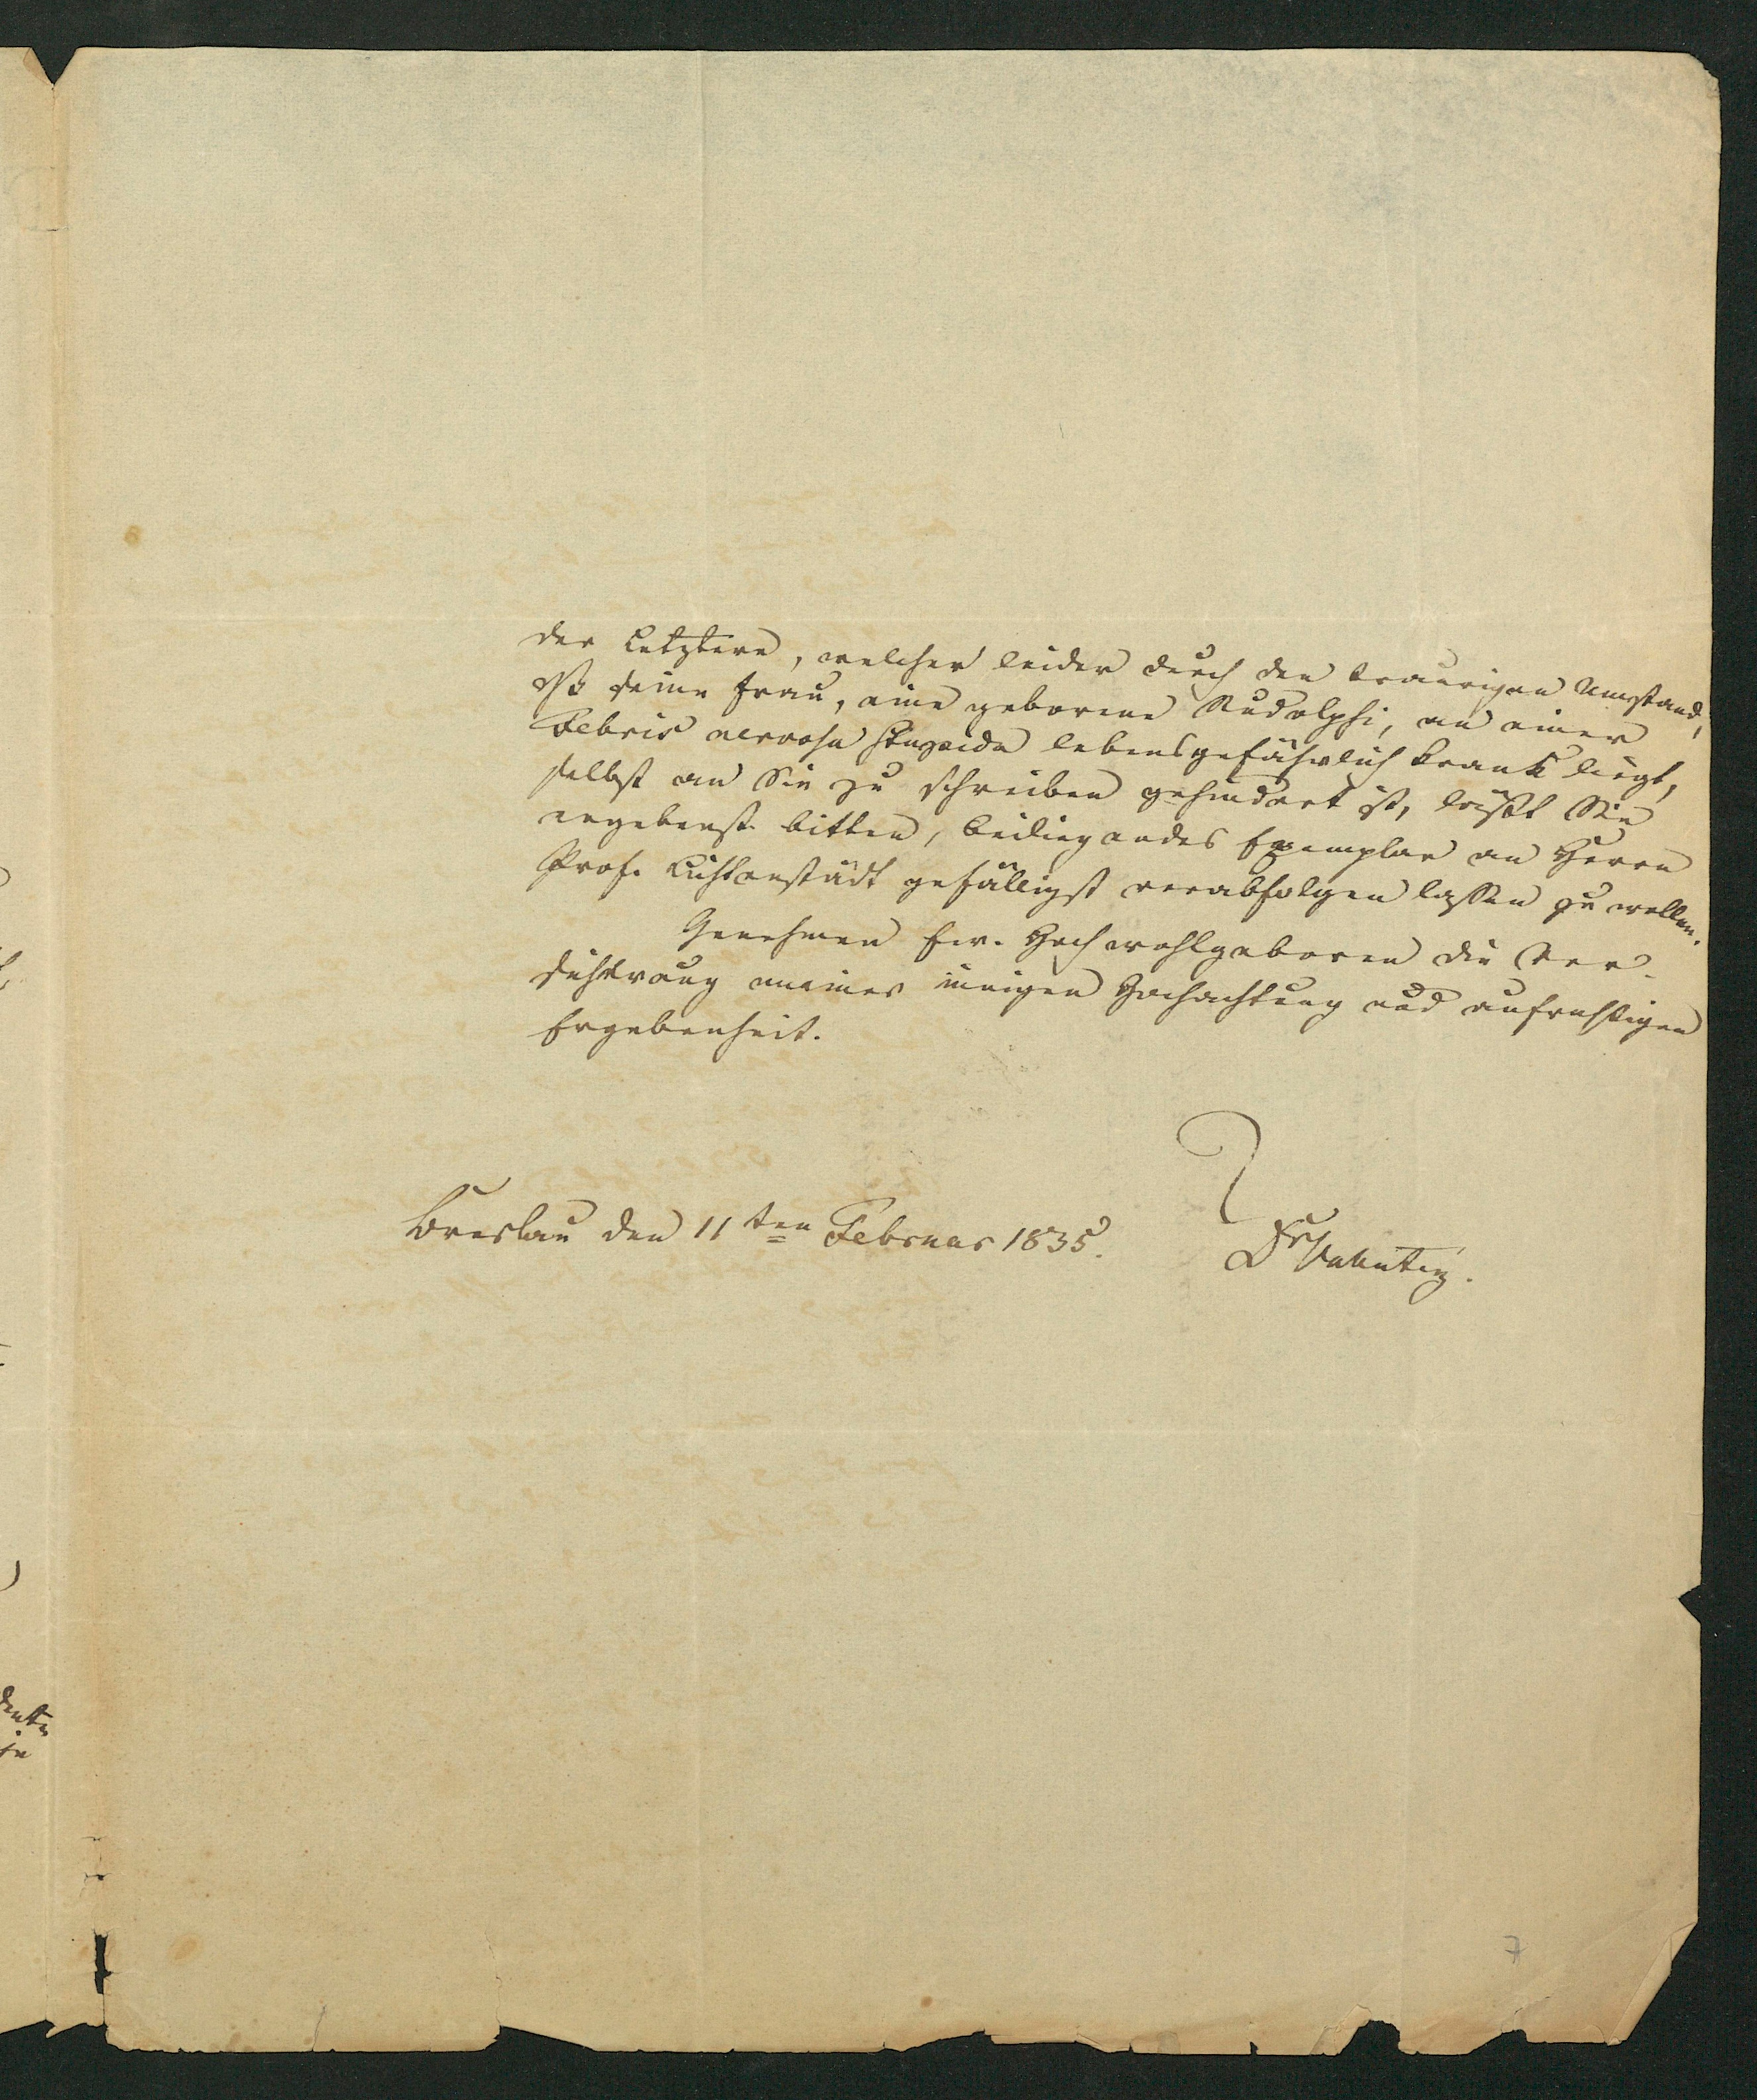 der Letztere, welcher leider durch den traurigen Umstand,
daß seine Frau, eine geborene Rudolphi, an einer
Febris nervosa stupida lebensgefährlich krank liegt,
selbst an Sie zu schreiben gehindert ist, läßt Sie
ergebenst bitten, beiliegendes Exemplar an Herrn
Prof. Lichtenstädt gefälligst verabfolgen lassen zu wollen.
Genehmen Ew. Hochwohlgeboren die Ver-
sicherung meiner innigen Hochachtung und aufrichtigen
Ergebenheit.
Breslau den 11ten Februar 1835.
Dr Valentin.
7